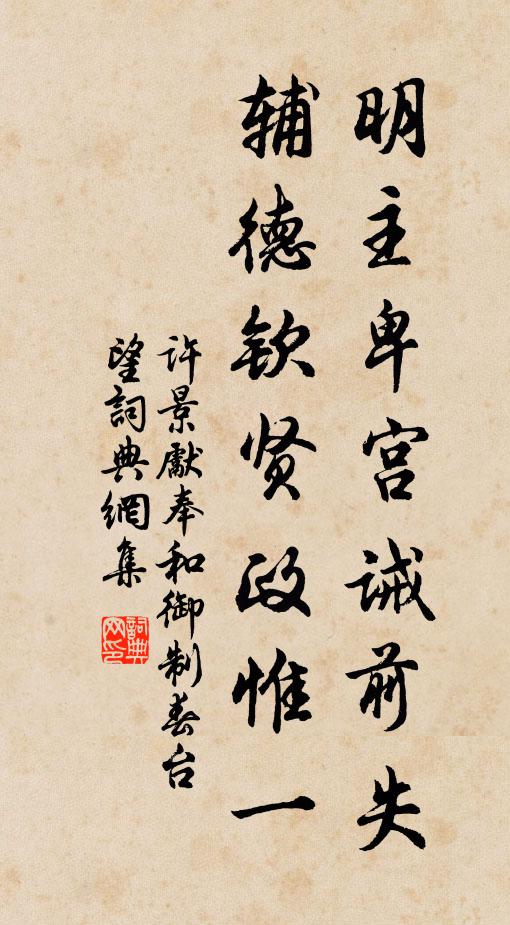 明主卑宫诫前失
辅德钦贤政惟一
许景獻奉和御制春台
望詞典網集
詞典
网印